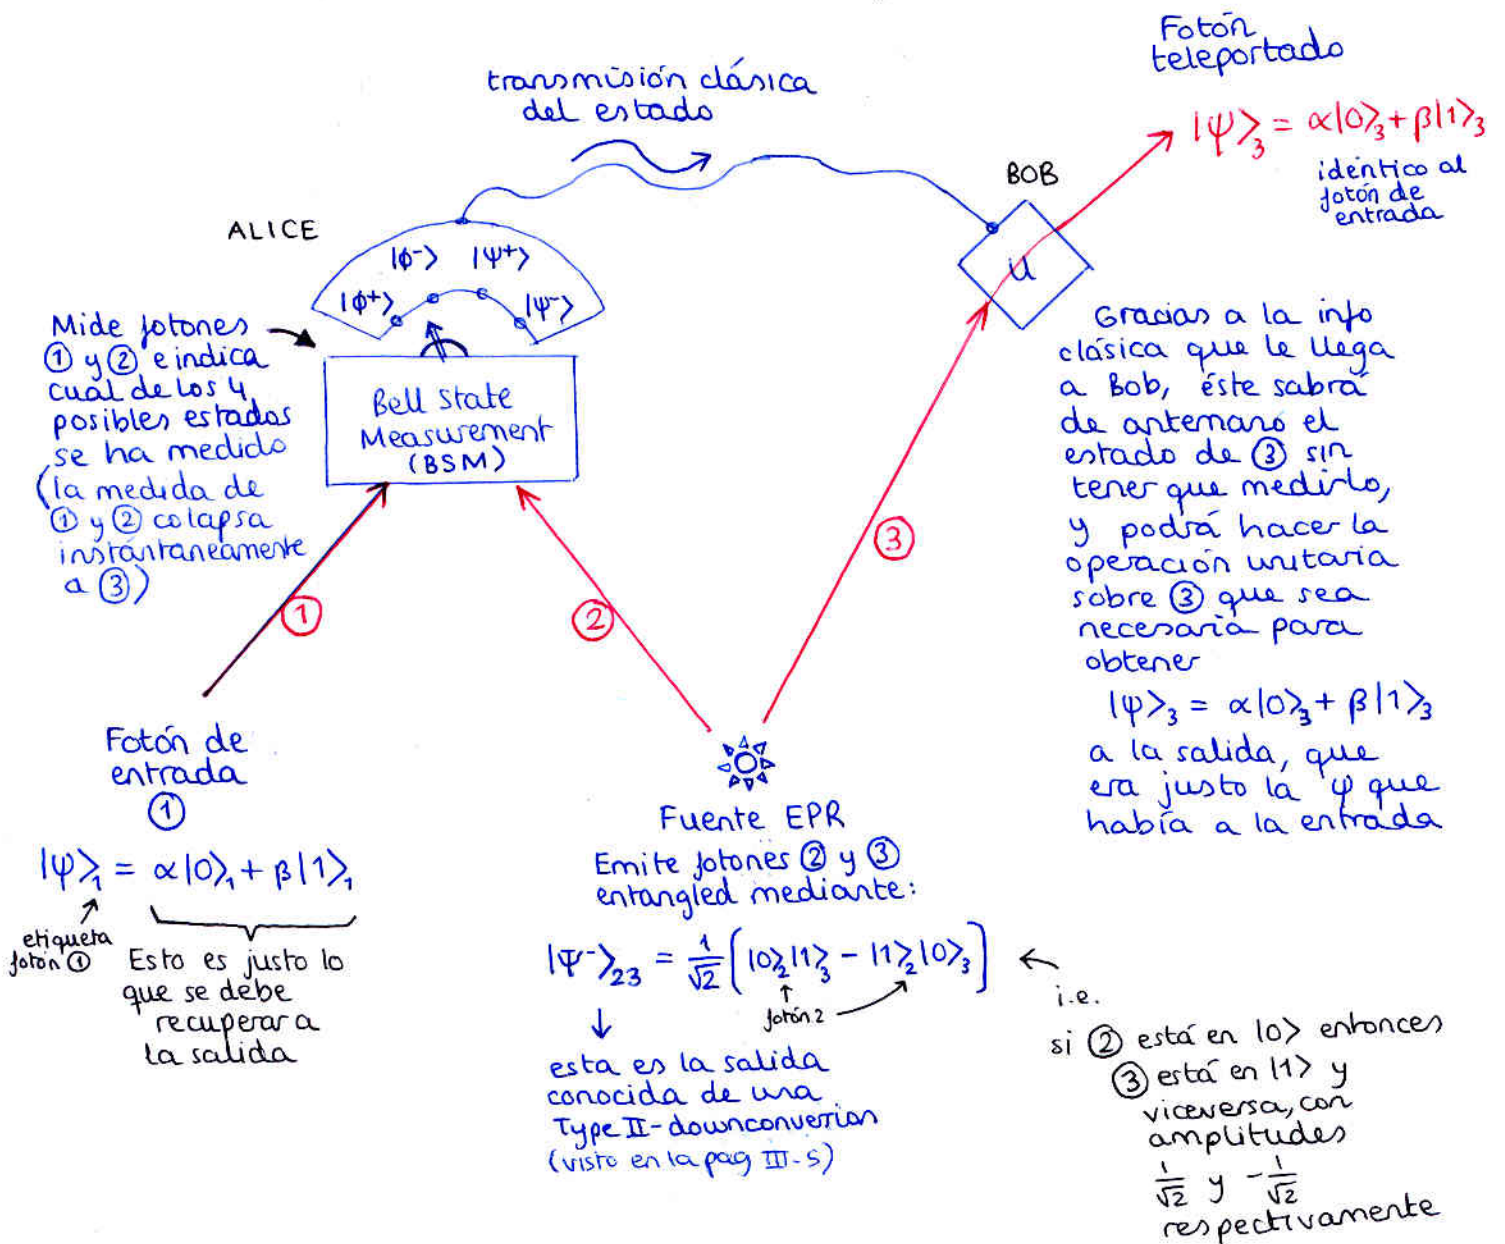 Fotón
teleportado
transmisión clásica
del estado
|ψ⟩₃ = α|0⟩₃ + β|1⟩₃
idéntico al
fotón de
entrada
BOB
ALICE
|ϕ⁻⟩ |ψ⁺⟩
|ϕ⁺⟩ |ψ⁻⟩
U
Mide fotones
① y ② e indica
cuál de los 4
posibles estados
se ha medido
(la medida de
① y ② colapsa
instantáneamente
a ③)
Bell state
Measurement
(BSM)
Gracias a la info
clásica que le llega
a Bob, éste sabrá
de antemano el
estado de ③ sin
tener que medirlo,
y podrá hacer la
operación unitaria
sobre ③ que sea
necesaria para
obtener
|ψ⟩₃ = α|0⟩₃ + β|1⟩₃
a la salida, que
era justo la φ que
había a la entrada
①
②
③
Fotón de
entrada
①
|ψ⟩₁ = α|0⟩₁ + β|1⟩₁
etiqueta
fotón ①
Esto es justo lo
que se debe
recuperar a
la salida
Fuente EPR
Emite fotones ② y ③
entangled mediante:
|Ψ⁻⟩₂₃ = 1/√2 [|0⟩₂|1⟩₃ − |1⟩₂|0⟩₃]
fotón 2
esta es la salida
conocida de una
Type II-downconvertion
(visto en la pag III-5)
i.e.
si ② está en |0⟩ entonces
③ está en |1⟩ y
viceversa, con
amplitudes
1/√2 y −1/√2
respectivamente